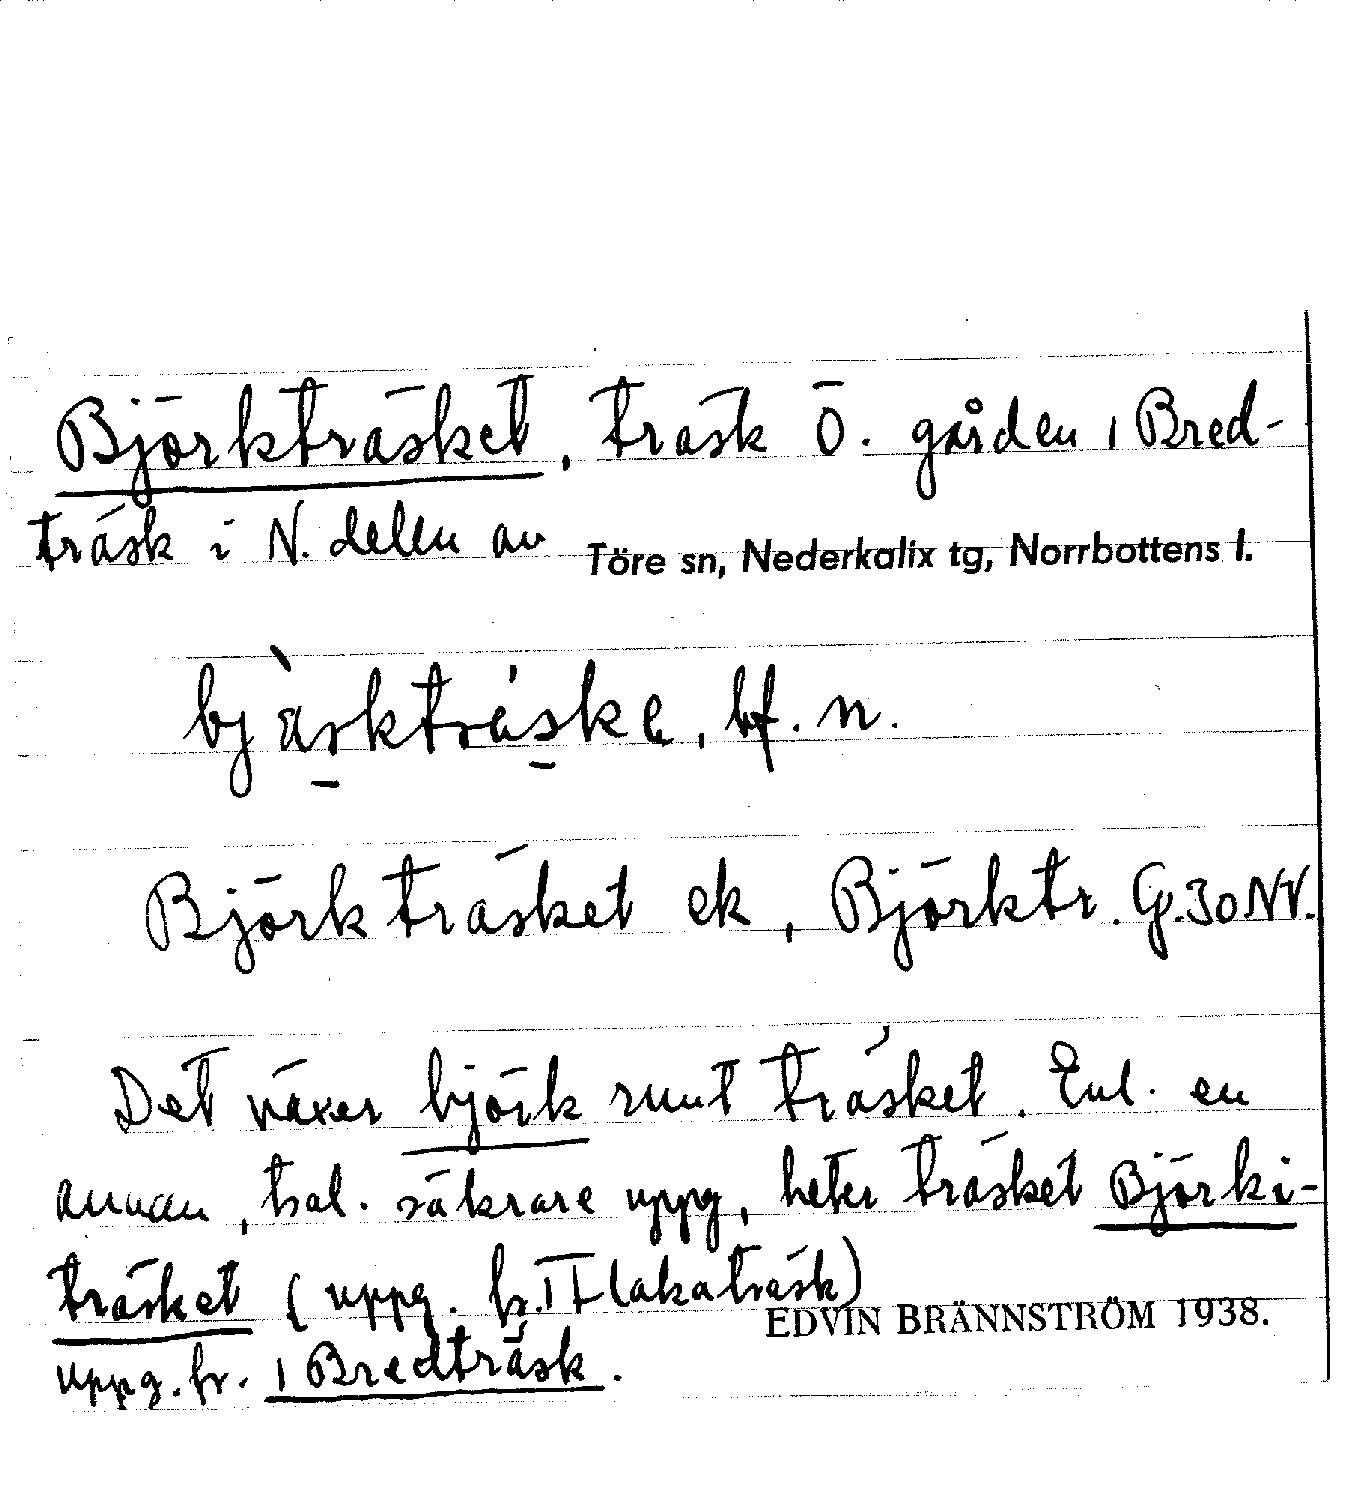 Björkträsket, träsk Ö. gården 1 Bred-
träsk i N. delen av Töre sn, Nederkalix tg, Norrbottens l.
bjàrkträ́ske, bf. n.
Björkträsket ek, Björktr. G.30NV.
Det växer björk runt träsket. Enl. en
annan, tral. säkrare uppg, heter träsket Björki-
träsket (uppg. fr. Flakaträsk)
EDVIN BRÄNNSTRÖM 1938.
uppg. fr. 1 Bredträsk.